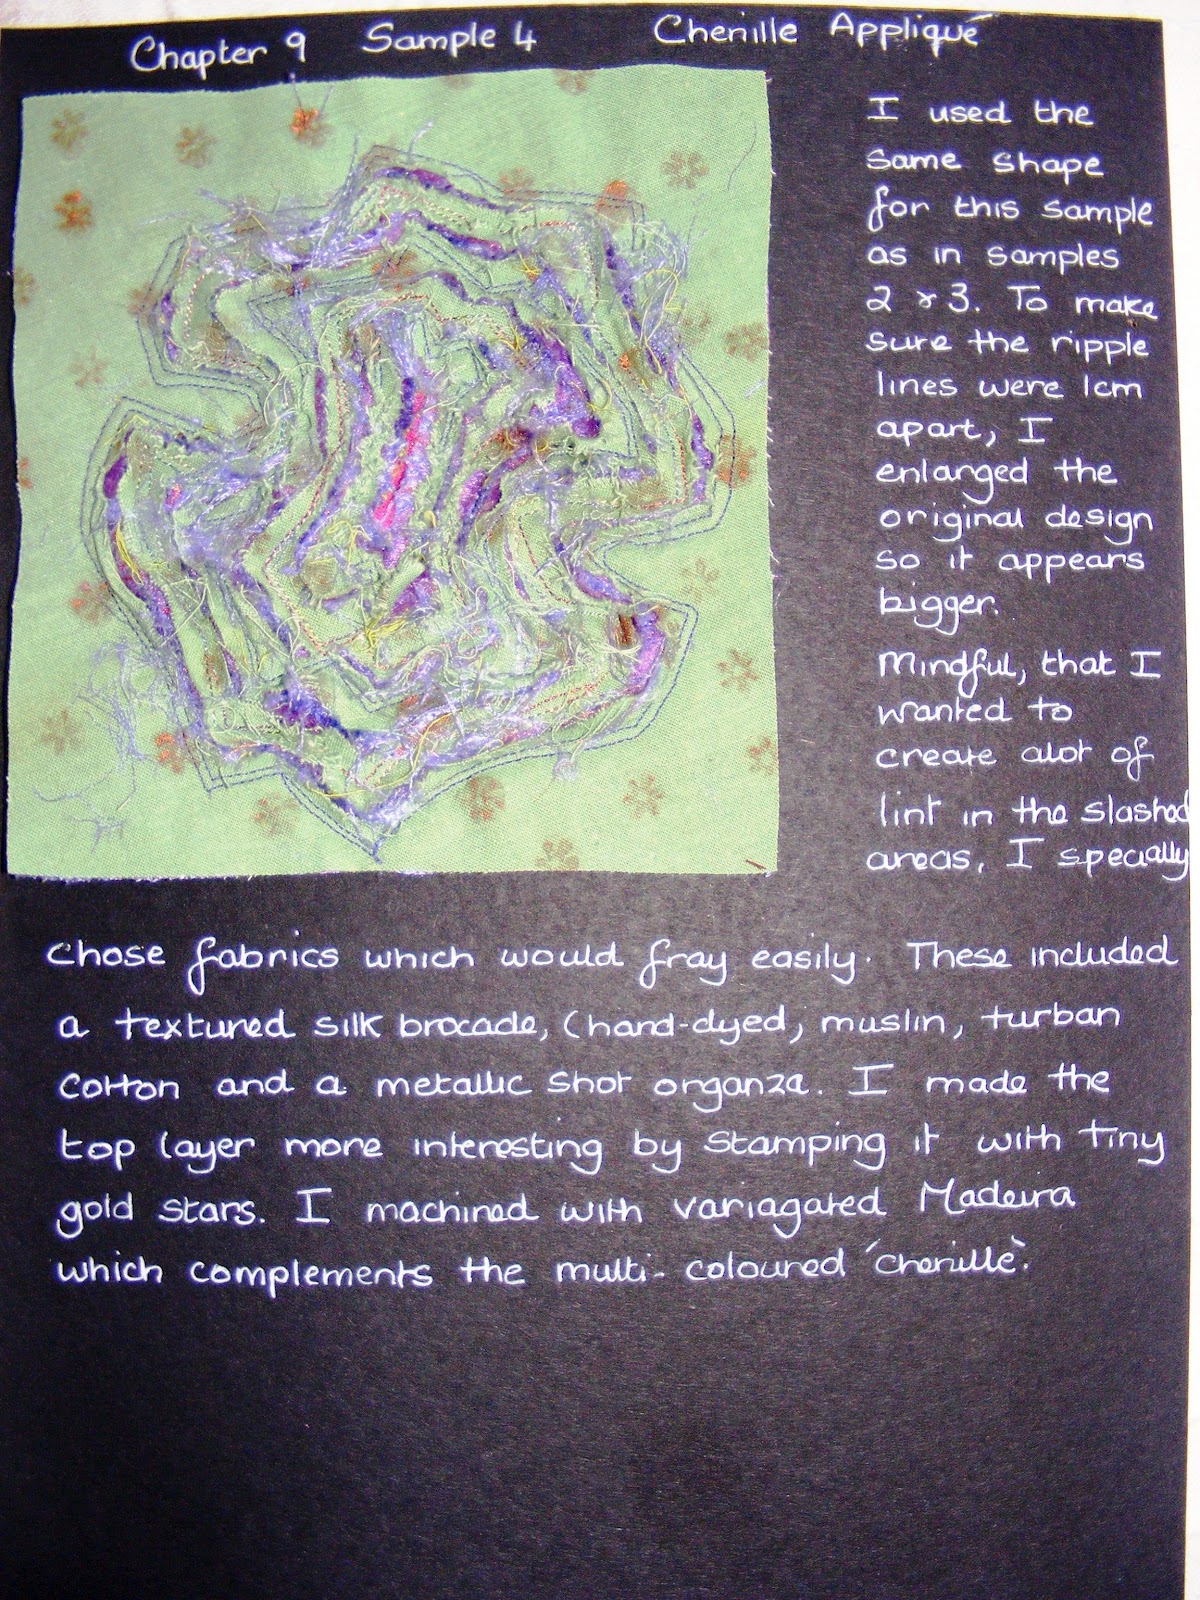 Chapter 9 Sample 4 Chenille Appliqué
I used the
same shape
for this sample
as in samples
2 & 3. To make
sure the ripple
lines were 1cm
apart, I
enlarged the
original design
so it appears
bigger.
Mindful, that I
wanted to
create alot of
lint in the slashed
areas, I specially
chose fabrics which would fray easily. These included
a textured silk brocade, (hand-dyed, muslin, turban
cotton and a metallic shot organza. I made the
top layer more interesting by stamping it with tiny
gold stars. I machined with variagated Madeira
which complements the multi-coloured 'chenille'.